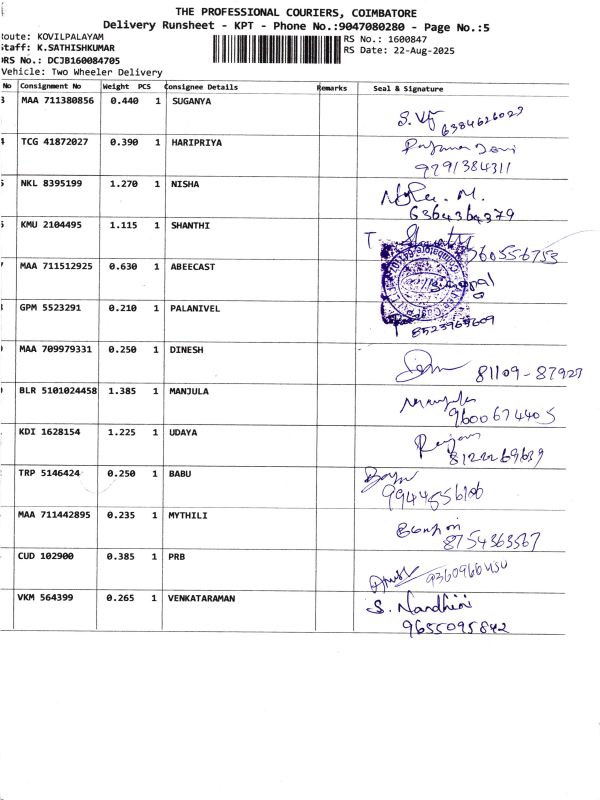 THE PROFESSIONAL COURIERS, COIMBATORE
Delivery Runsheet - KPT - Phone No.:9047080280 - Page No.:5
Route: KOVILPALAYAM
RS No.: 1600847
Staff: K.SATHISHKUMAR
RS Date: 22-Aug-2025
DRS No.: DCJB160084705
Vehicle: Two Wheeler Delivery
No Consignment No Weight PCS Consignee Details Remarks Seal & Signature
3 MAA 711380856 0.440 1 SUGANYA
6384626023
4 TCG 41872027 0.390 1 HARIPRIYA
9291384311
5 NKL 8395199 1.270 1 NISHA
M.
6364364379
6 KMU 2104495 1.115 1 SHANTHI
T
360556753
7 MAA 711512925 0.630 1 ABEECAST
8 GPM 5523291 0.210 1 PALANIVEL
8523965609
9 MAA 709979331 0.250 1 DINESH
81109-87927
BLR 5101024458 1.385 1 MANJULA
9600674405
KDI 1628154 1.225 1 UDAYA
8122269639
TRP 5146424 0.250 1 BABU
9944556106
MAA 711442895 0.235 1 MYTHILI
8754363567
CUD 102900 0.385 1 PRB
VKM 564399 0.265 1 VENKATARAMAN
S. Nandhini
9655095842